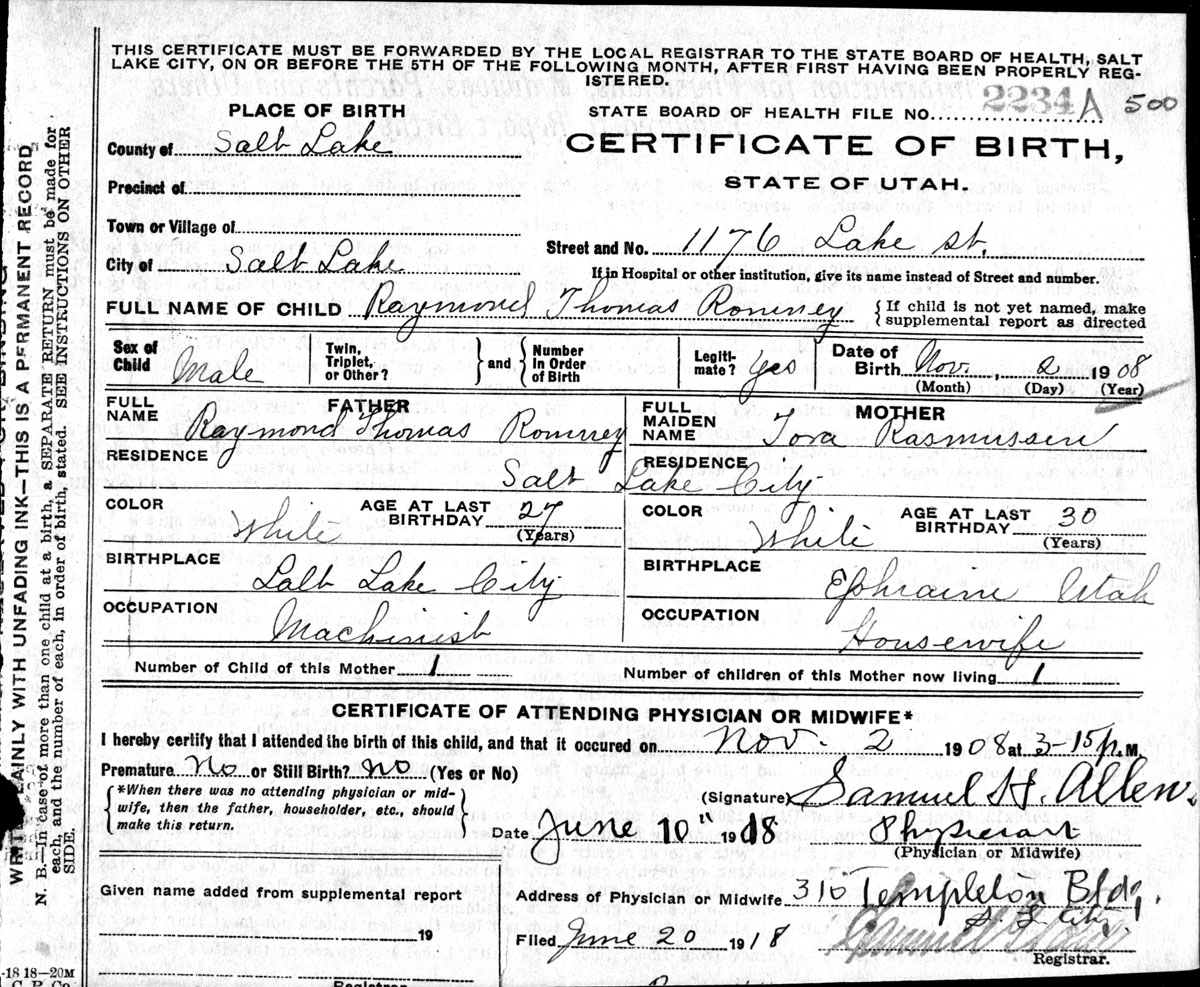 THIS CERTIFICATE MUST BE FORWARDED BY THE LOCAL REGISTRAR TO THE STATE BOARD OF HEALTH, SALT
LAKE CITY, ON OR BEFORE THE 5TH OF THE FOLLOWING MONTH, AFTER FIRST HAVING BEEN PROPERLY REG-
ISTERED.
PLACE OF BIRTH
STATE BOARD OF HEALTH FILE NO. 2234 A 500
County of Salt Lake
CERTIFICATE OF BIRTH,
STATE OF UTAH.
Precinct of
Town or Village of
Street and No. 1176 Lake St.
City of Salt Lake
If in Hospital or other institution, give its name instead of Street and number.
FULL NAME OF CHILD Raymond Thomas Romney { If child is not yet named, make
supplemental report as directed
Sex of Child Male
Twin, Triplet, or Other? } and { Number in Order of Birth
Legiti-mate? Yes
Date of Birth Nov. 2 1908
(Month) (Day) (Year)
FATHER
FULL NAME Raymond Thomas Romney
MOTHER
FULL MAIDEN NAME Tora Rasmussen
RESIDENCE RESIDENCE
Salt Lake City
COLOR White AGE AT LAST BIRTHDAY 27 (Years)
COLOR White AGE AT LAST BIRTHDAY 30 (Years)
BIRTHPLACE Salt Lake City
BIRTHPLACE Ephraim Utah
OCCUPATION Machinist
OCCUPATION Housewife
Number of Child of this Mother 1 Number of children of this Mother now living 1
CERTIFICATE OF ATTENDING PHYSICIAN OR MIDWIFE*
I hereby certify that I attended the birth of this child, and that it occured on Nov. 2 1908 at 3-15 P.M.
Premature No or Still Birth? No (Yes or No)
{ *When there was no attending physician or mid-
wife, then the father, householder, etc., should
make this return. }
(Signature) Samuel H. Allen
Date June 10" 1918 Physician
(Physician or Midwife)
Given name added from supplemental report
Address of Physician or Midwife 310 Templeton Bldg.
S. L. City
19
Filed June 20 1918
Registrar.
Registrar
WRITE PLAINLY WITH UNFADING INK—THIS IS A PERMANENT RECORD
N. B. In case of more than one child at a birth, a SEPARATE RETURN must be made for
each, and the number of each, in order of birth, stated. SEE INSTRUCTIONS ON OTHER
SIDE.
-18 18—20M
C. P. Co.